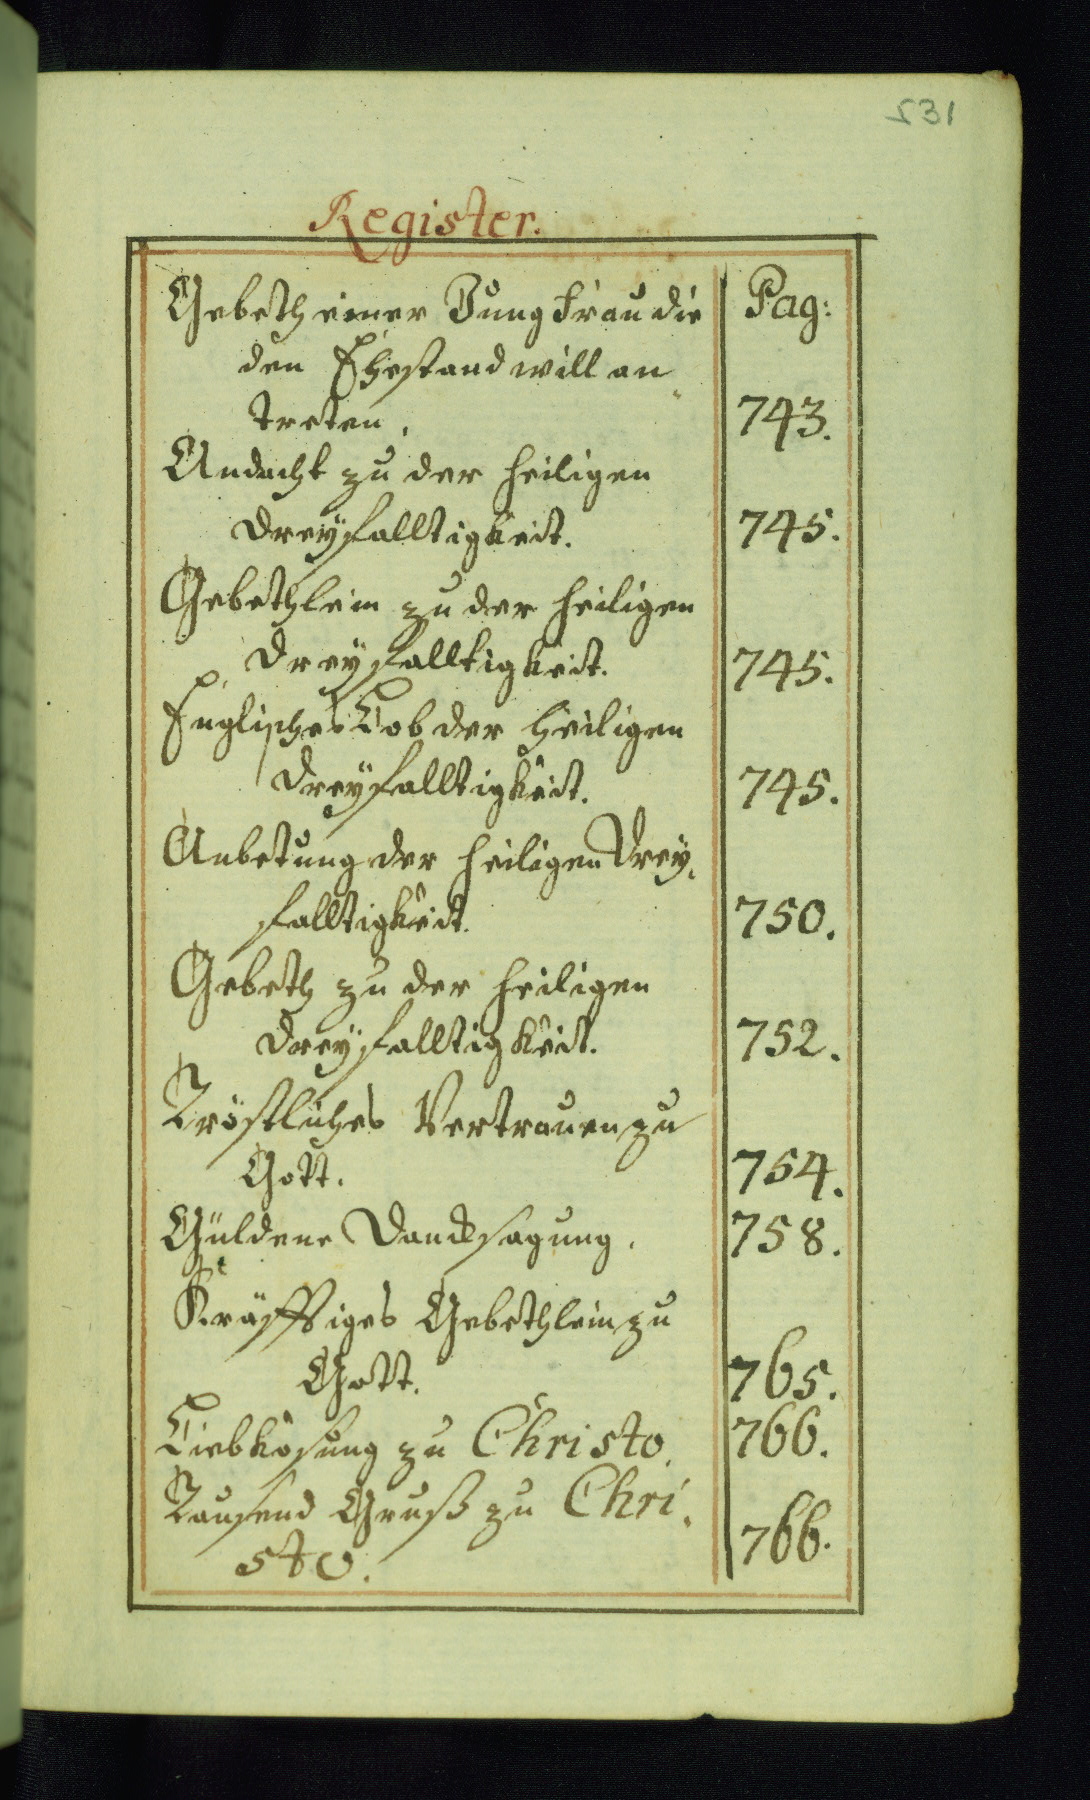 531
Register.
Gebeth einer Jungfrau die Pag:
den Ehestand will an„
treten. 743.
Andacht zu der heiligen
dreyfalltigkeit. 745.
Gebethlein zu der heiligen
dreyfalltigkeit. 745.
Englisches Lob der heiligen
dreyfalltigkeit. 745.
Anbetung der heiligen Drey„
falltigkeit. 750.
Gebeth zu der heiligen
dreyfalltigkeit. 752.
Tröstliches Vertrauen zu
Gott. 754.
Güldene Dancksagung. 758.
Kräfftiges Gebethlein zu
Gott. 765.
Liebkosung zu Christo. 766.
Tausend Gruß zu Chri„
sto. 766.